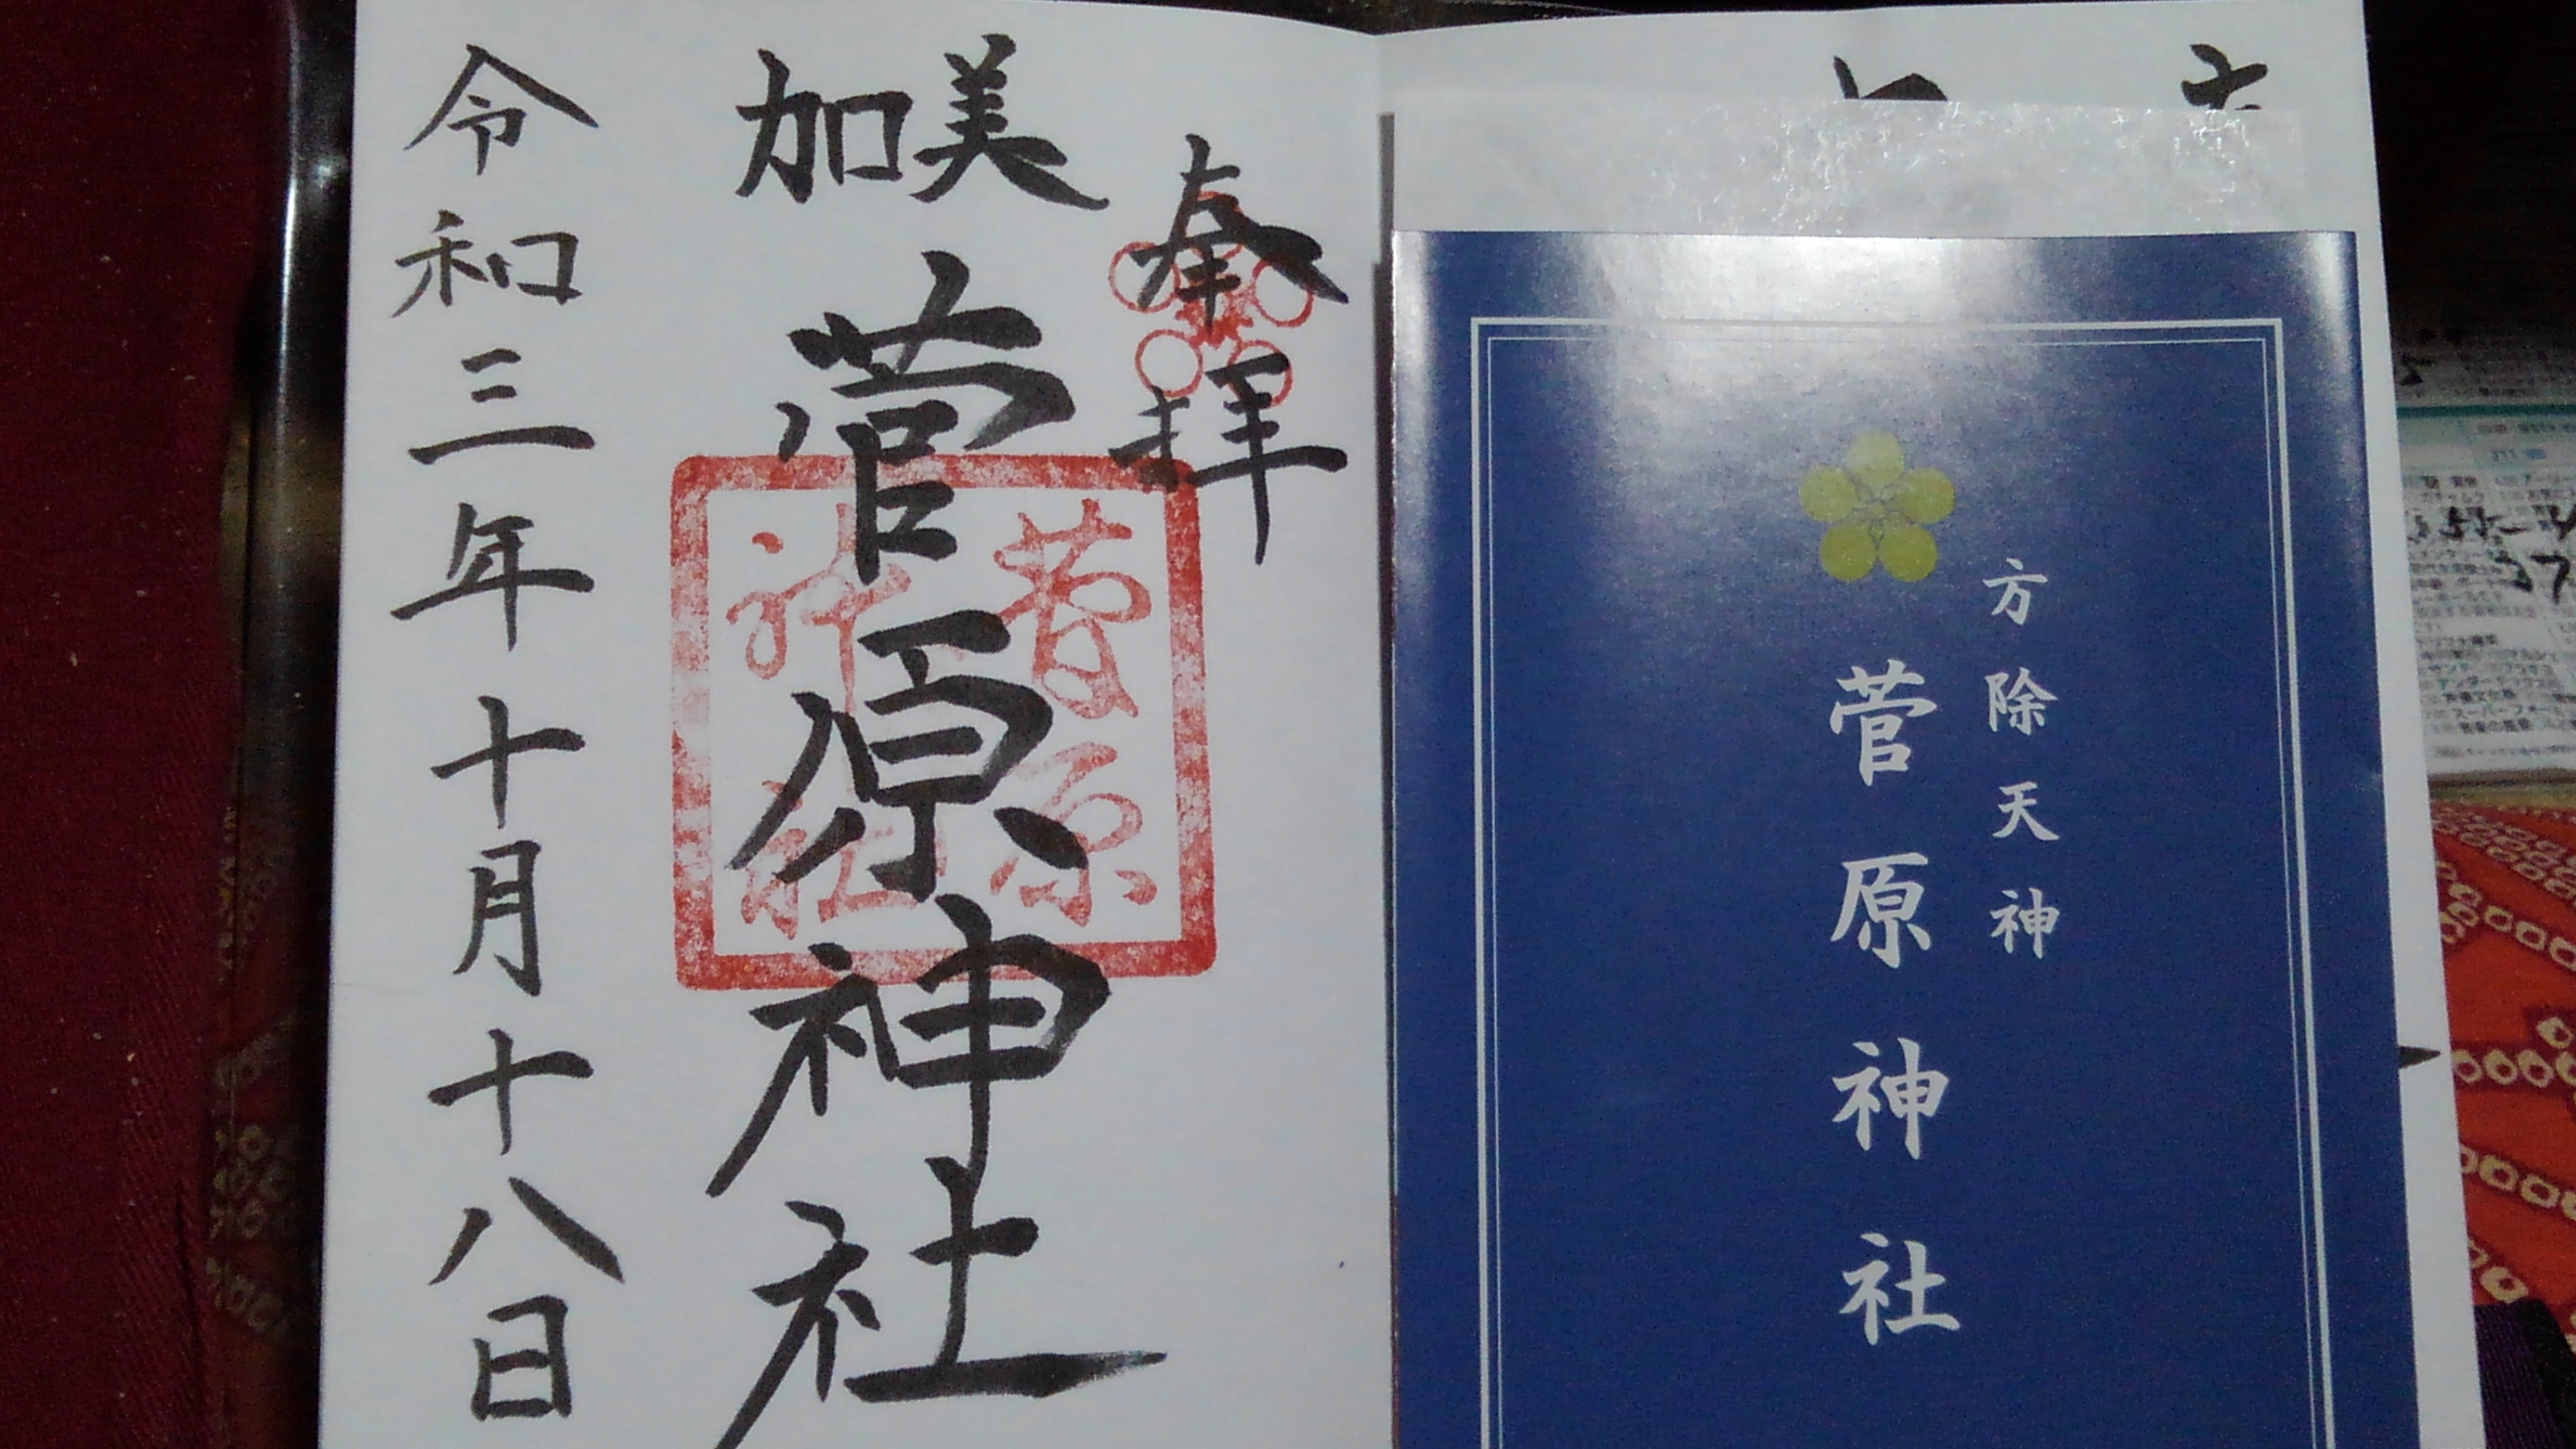 方除天神
菅原神社
奉拝
加美
菅原神社
菅原
神社
令和三年十月十八日